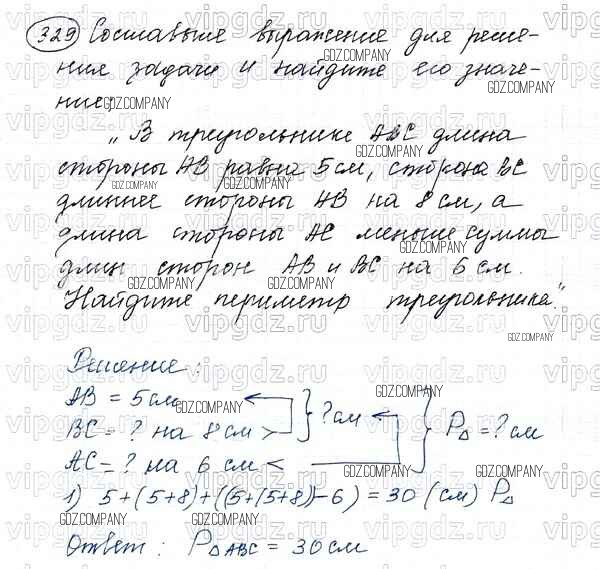 329 Составьте выражение для реше-
ния задачи и найдите его значе-
ние.
„В треугольнике ABC длина
стороны AB равна 5 см, сторона BC
длиннее стороны AB на 8 см, а
длина стороны AC меньше суммы
длин сторон AB и BC на 6 см.
Найдите периметр треугольника".
Решение:
AB = 5 см
BC = ? на 8 см > } ? см } P△ = ? см
AC = ? на 6 см <
1) 5+(5+8)+((5+(5+8))-6) = 30 (см) P△
Ответ: P△ABC = 30 см
vipgdz.ru
GDZ.COMPANY